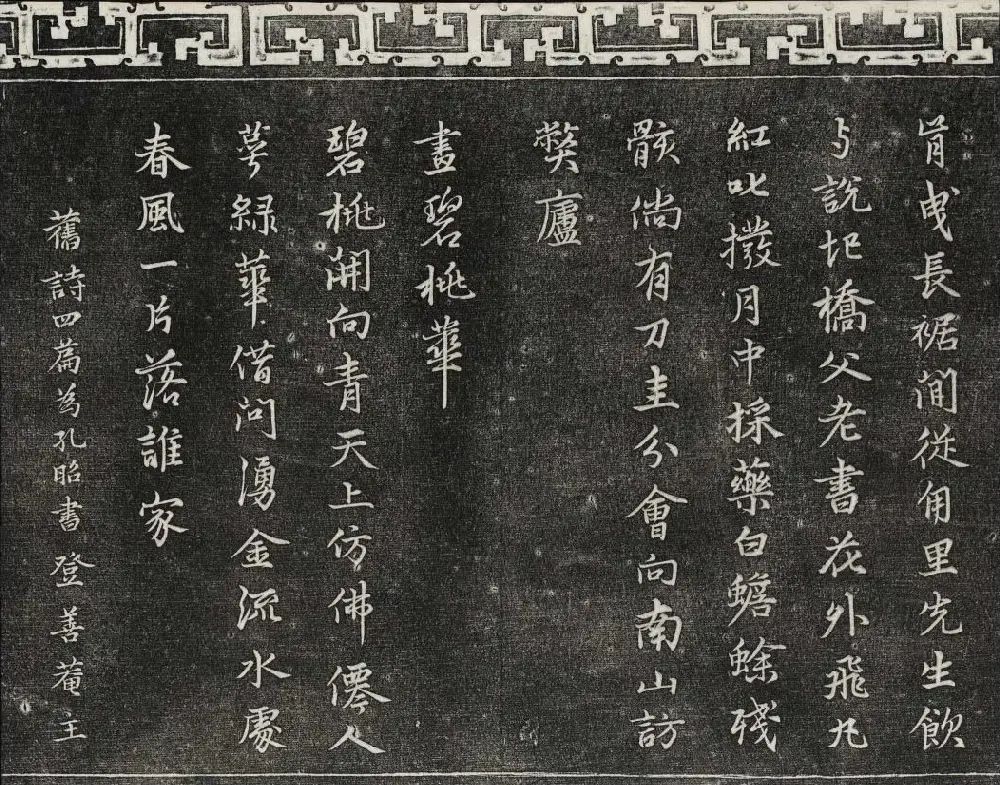 肯曳長裾間從甪里先生飲
与說圯橋父老書花外飛丸
紅叱撥月中採藥白蟾蜍殘
骸倘有刀圭分會向南山訪
弊廬
畫碧桃華
碧桃開向青天上仿佛僊人
萼綠華借問湧金流水處
春風一片落誰家
舊詩四篇為孔昭書 登善菴主